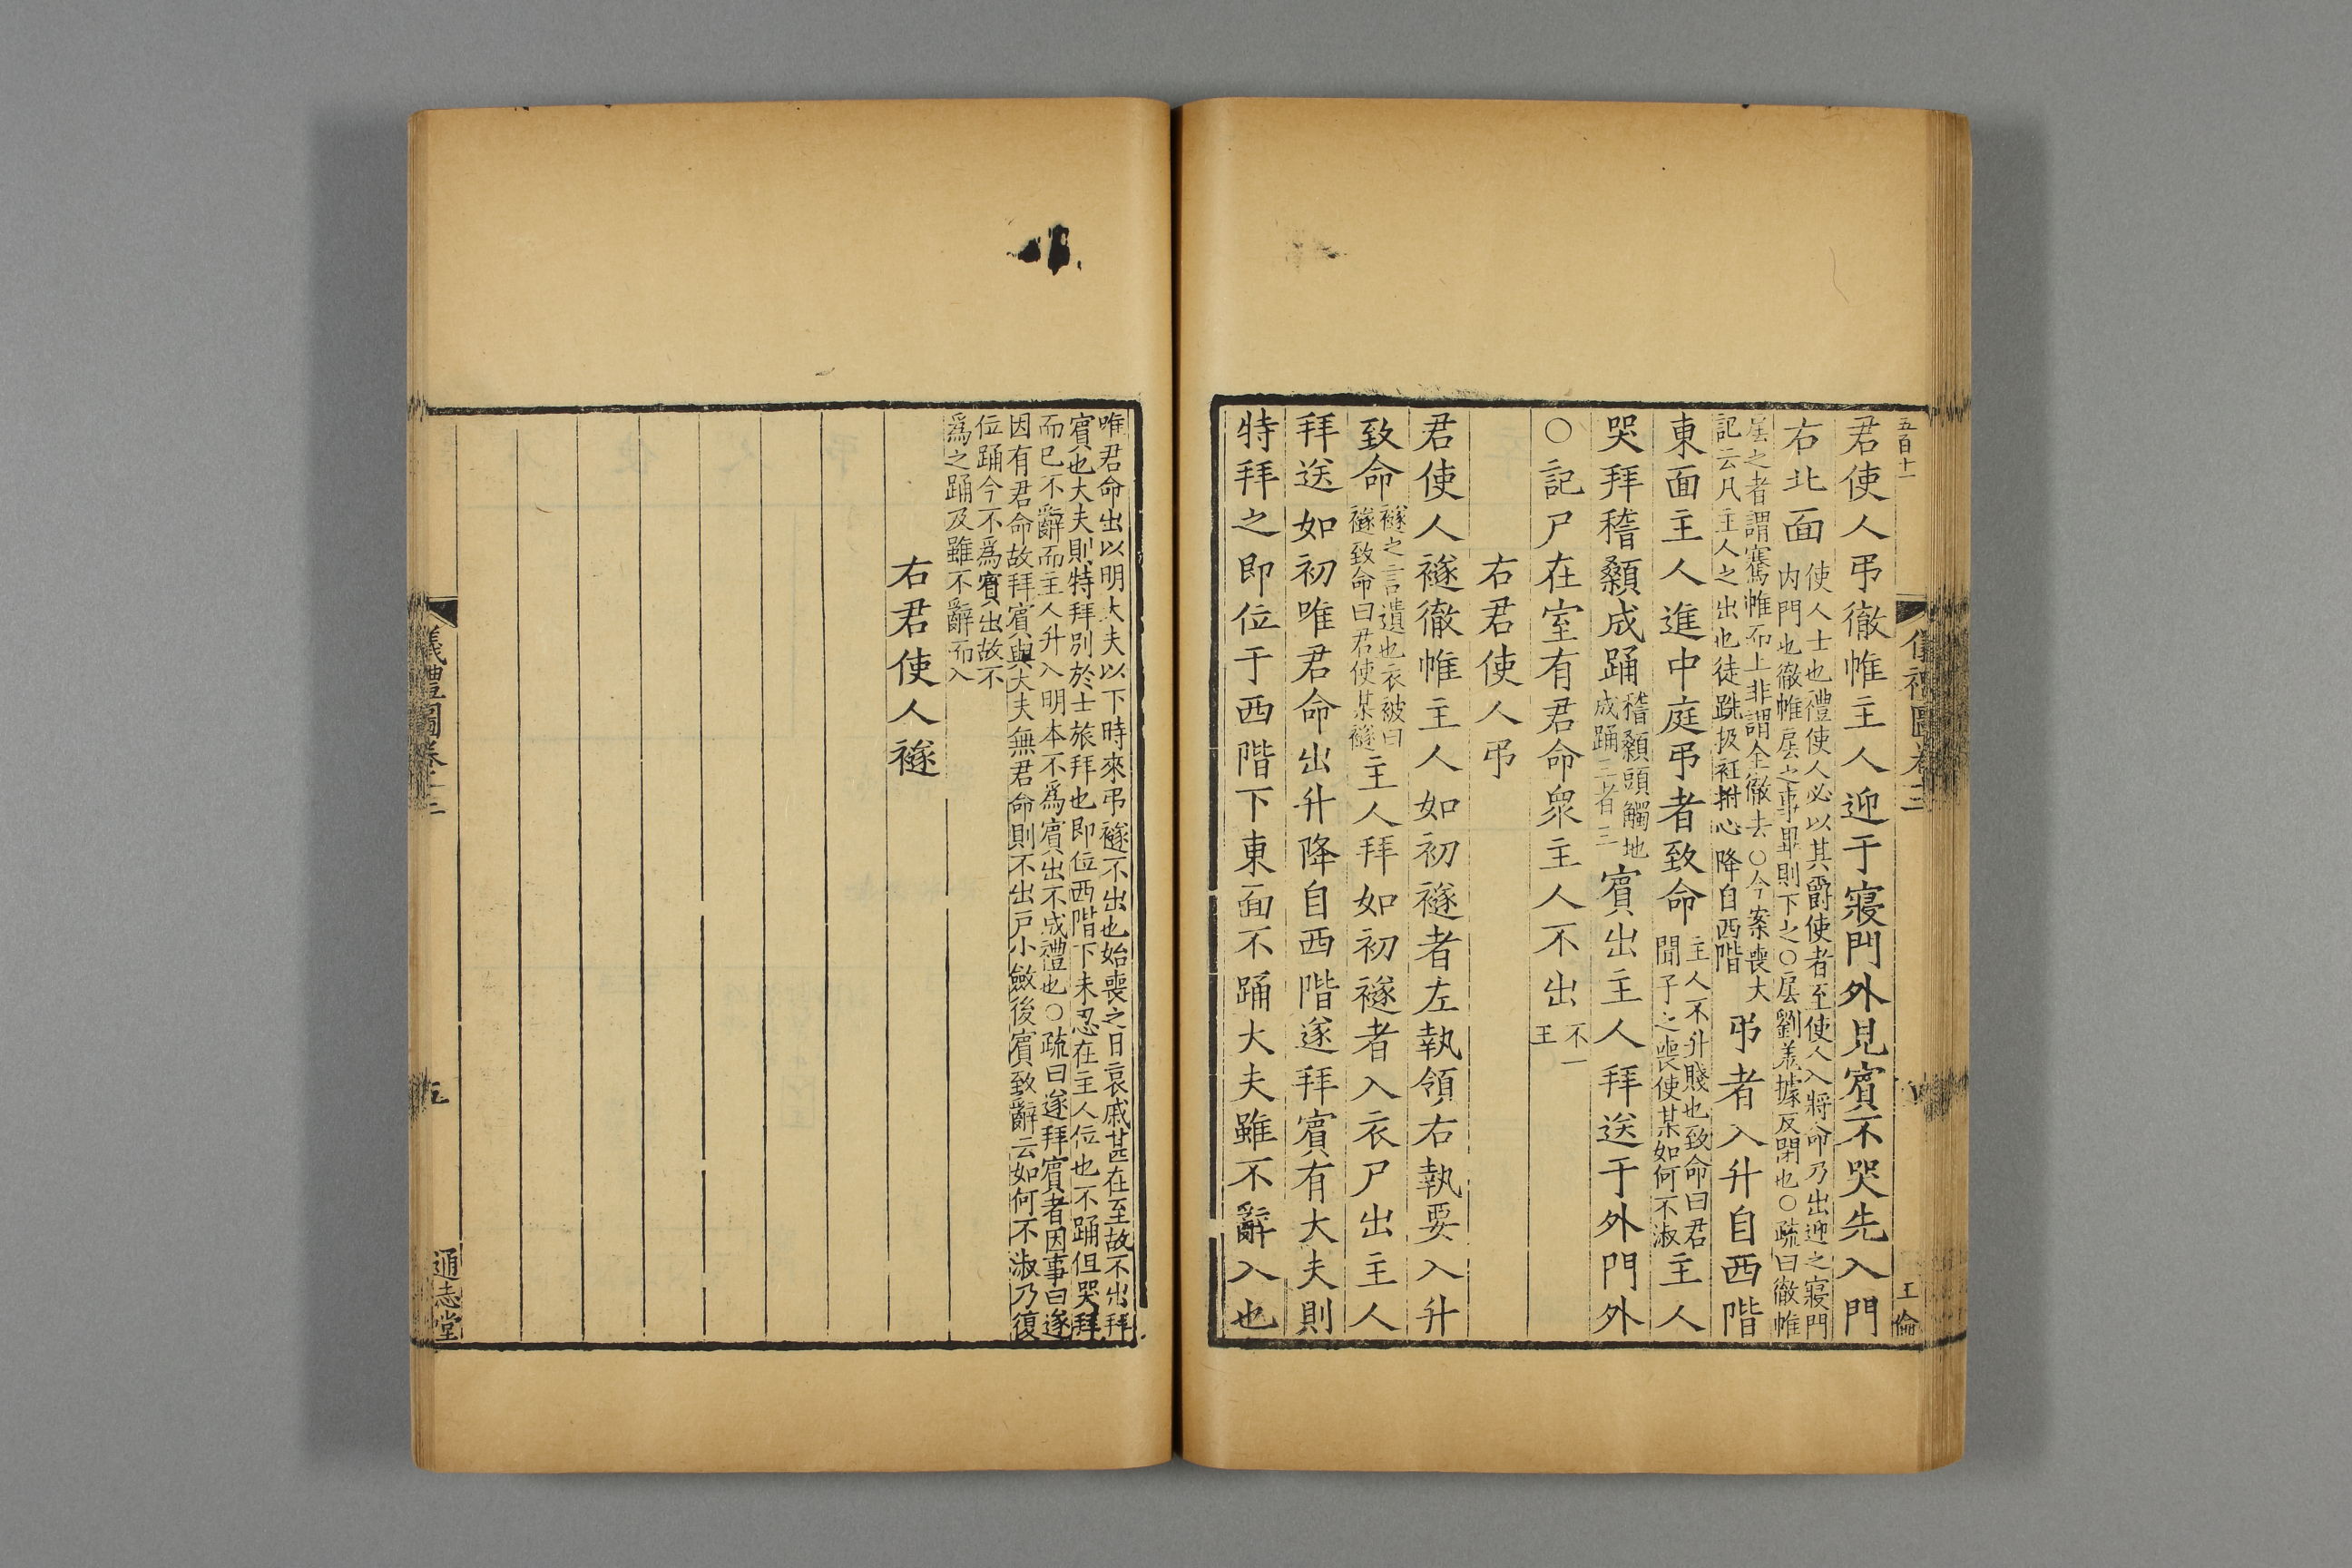 五百十一
王倫
君使人弔徹帷主人迎于寢門外見賓不哭先入門
右北面
使人士也禮使人必以其爵使者至使人入將命乃出迎之寢門
内門也徹帷㞐之事畢則下之○㞐劉羌據反閉也○疏曰徹帷
㞐之者謂褰帷而上非謂全徹去○今案喪大
記云凡主人之出也徒跣扱衽拊心降自西階
弔者入升自西階
東面主人進中庭弔者致命
主人不升賤也致命曰君
聞子之喪使某如何不淑
主人
哭拜稽顙成踊
稽顙頭觸地
成踊三者三
賓出主人拜送于外門外
○記尸在室有君命衆主人不出
不二
王
右君使人弔
君使人襚徹帷主人如初襚者左執領右執要入升
致命
襚之言遺也衣被曰
襚致命曰君使某襚
主人拜如初襚者入衣尸出主人
拜送如初唯君命出升降自西階遂拜賓有大夫則
特拜之即位于西階下東面不踊大夫雖不辭入也
唯君命出以明大夫以下時來弔襚不出也始喪之日哀戚甚在室故不出拜
賓也大夫則特拜別於士旅拜也即位西階下未忍在主人位也不踊但哭拜
而已不辭而主人升入明本不爲賓出不成禮也○疏曰遂拜賓者因事曰遂
因有君命故拜賓與大夫無君命則不出戶小斂後賓致辭云如何不淑乃復
位踊今不爲賓出故不
爲之踊及雖不辭而入
右君使人襚
儀禮圖卷十二
五
通志堂